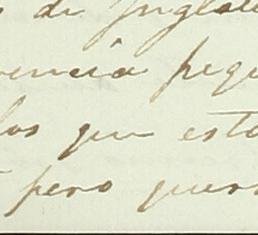 de Inglate
vencia pequ
los que esta
pero quer